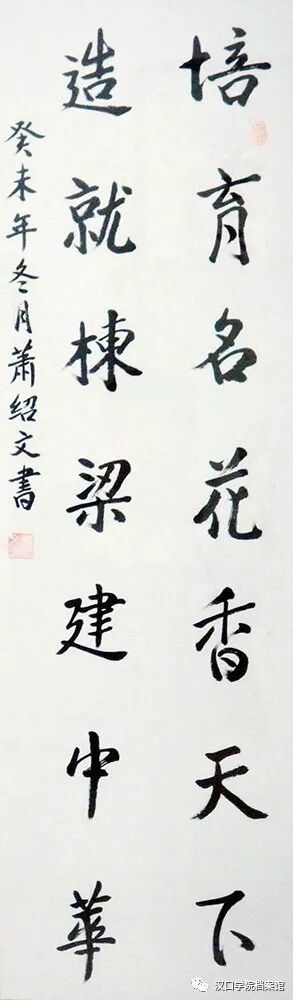 培育名花香天下
造就棟梁建中華
癸未年冬月蕭紹文書
汉口学院档案馆